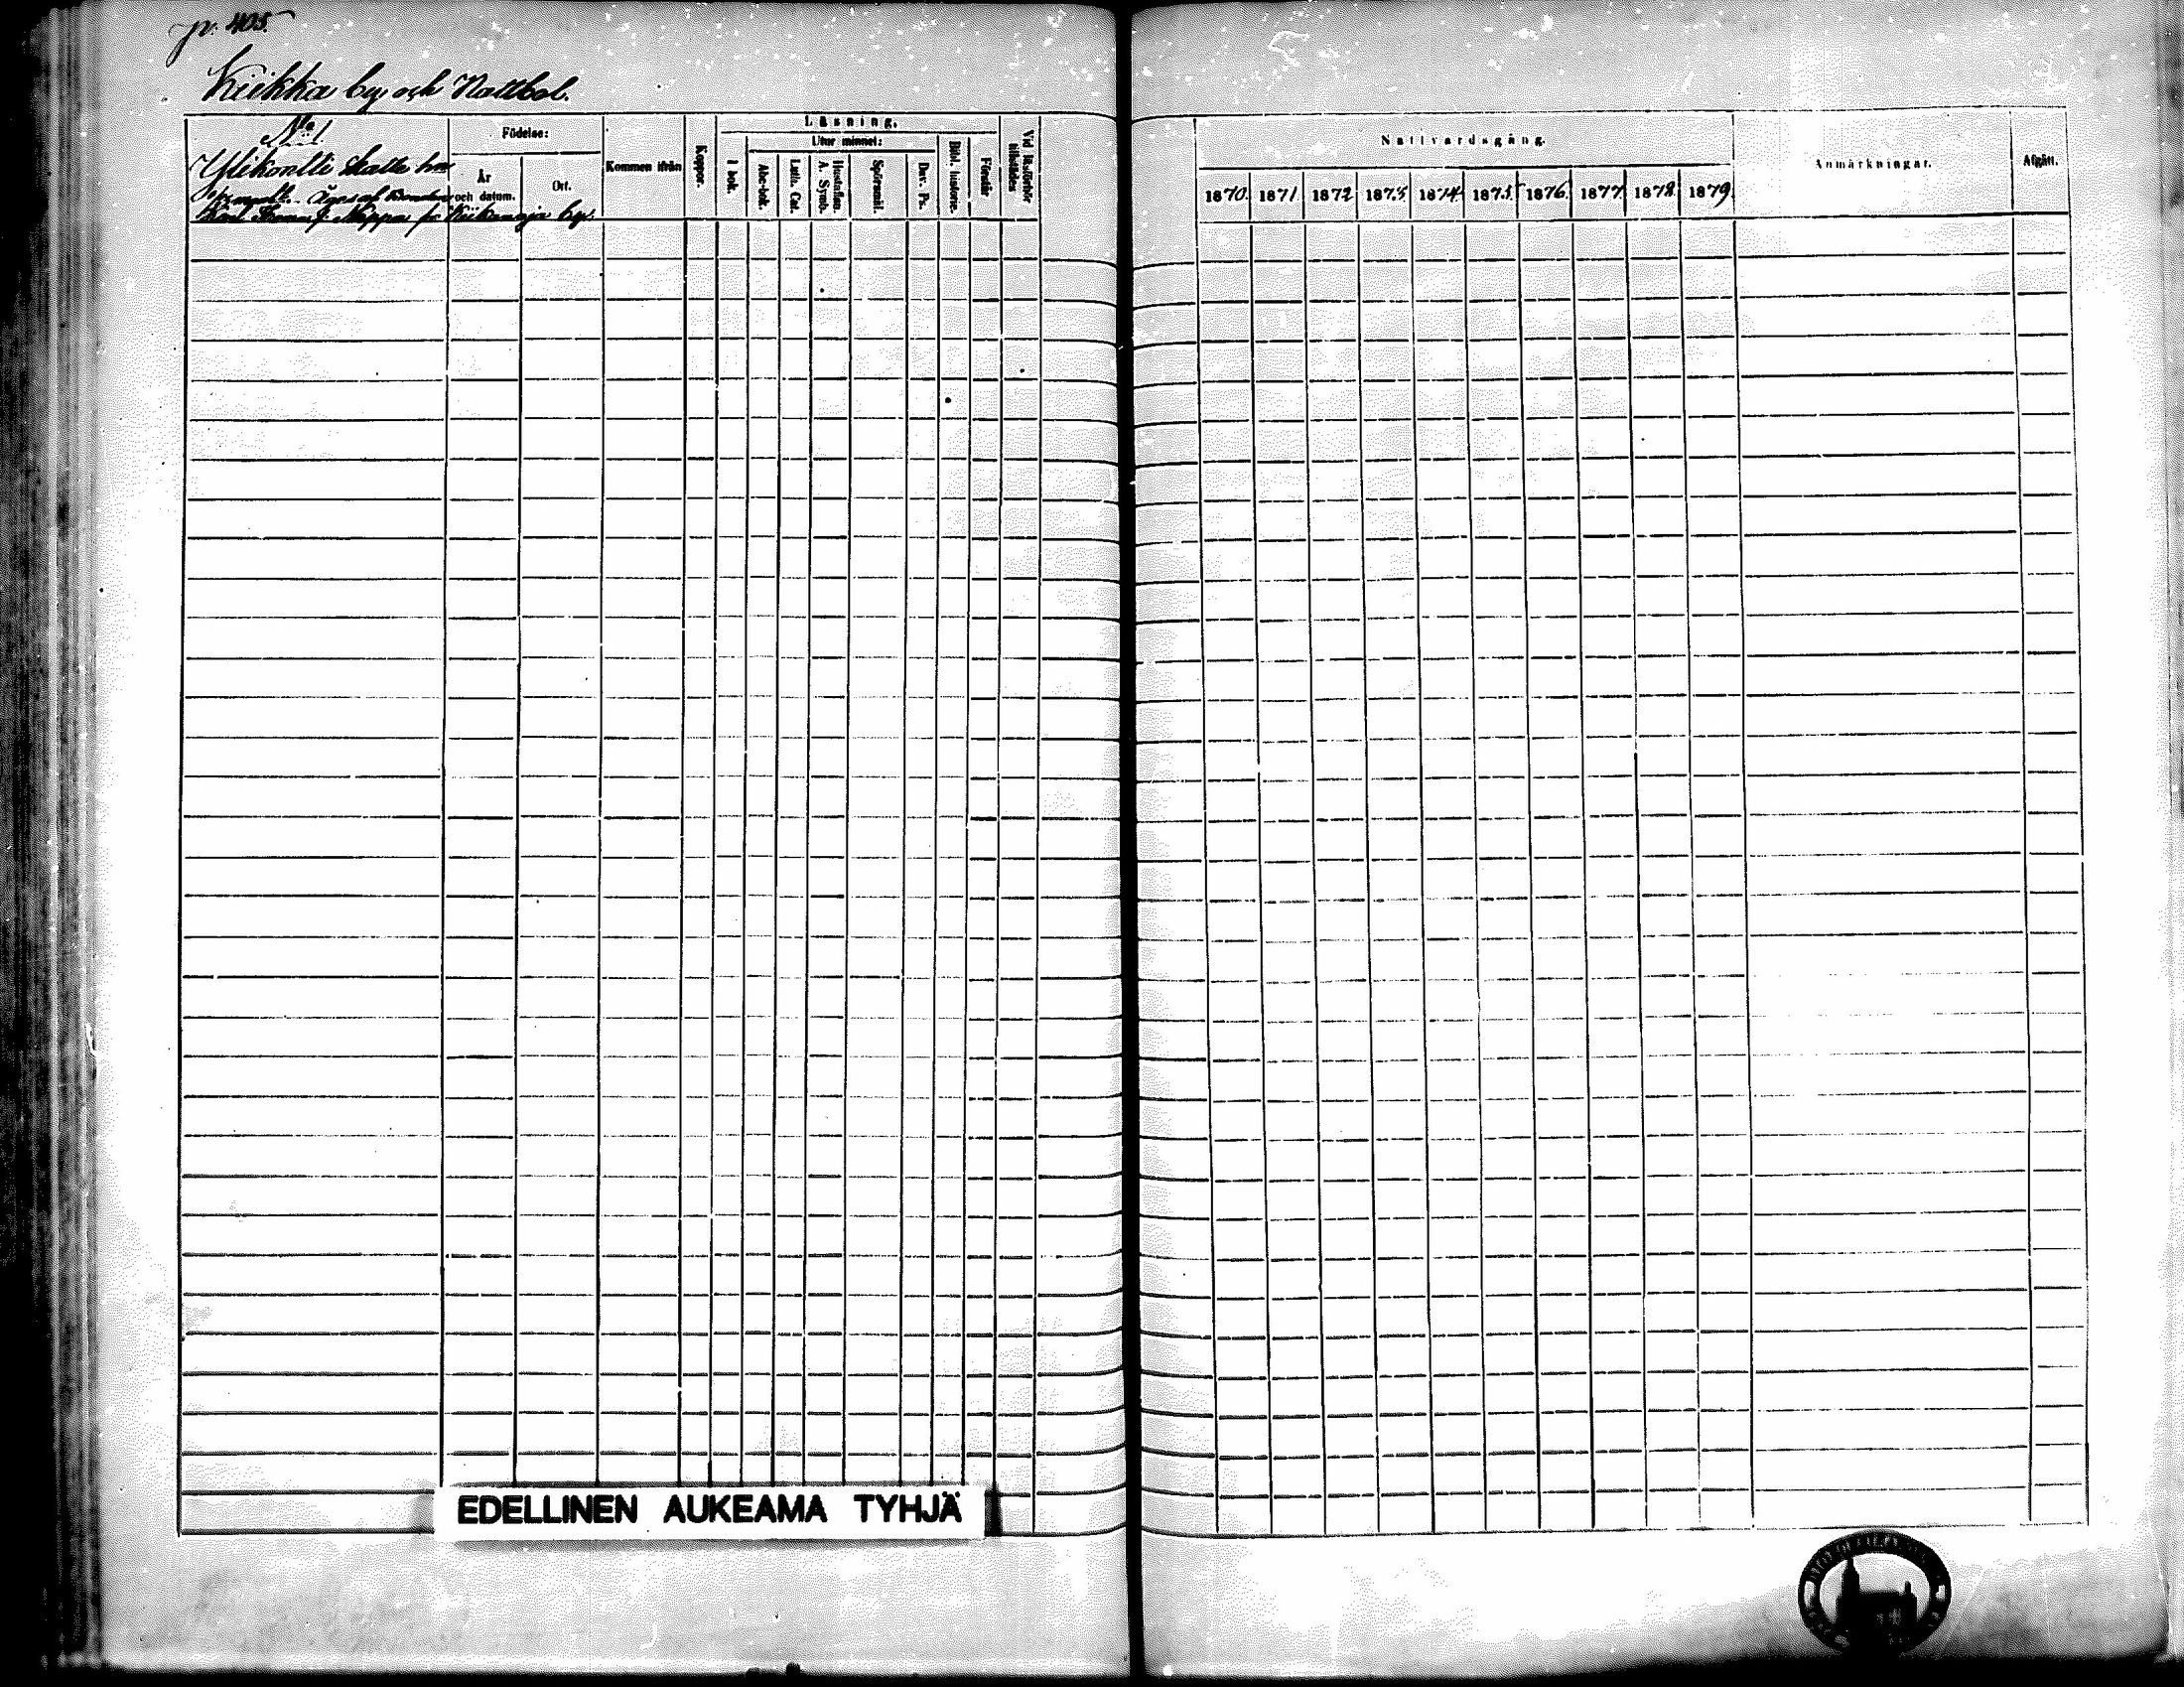 p. 405.
Kiikka by och Nattbol.
No 1
Ylikontti Skatte
Äges af
Kiikanoja by.
Födelse:
År och datum.
Ort.
Kommen ifrån
Koppor.
Läsning.
I bok.
Utur minnet:
Abc-bok.
Luth. Cat.
Hustaflan. A. Symb.
Spörsmål.
Dav. Ps.
Bibl. historie.
Förstår
Vid läsförhör tillstädes
Nattvardsgång.
1870. 1871 1872 1873 1874 1875 1876 1877 1878 1879
Anmärkningar.
Afgått.
EDELLINEN AUKEAMA TYHJÄ